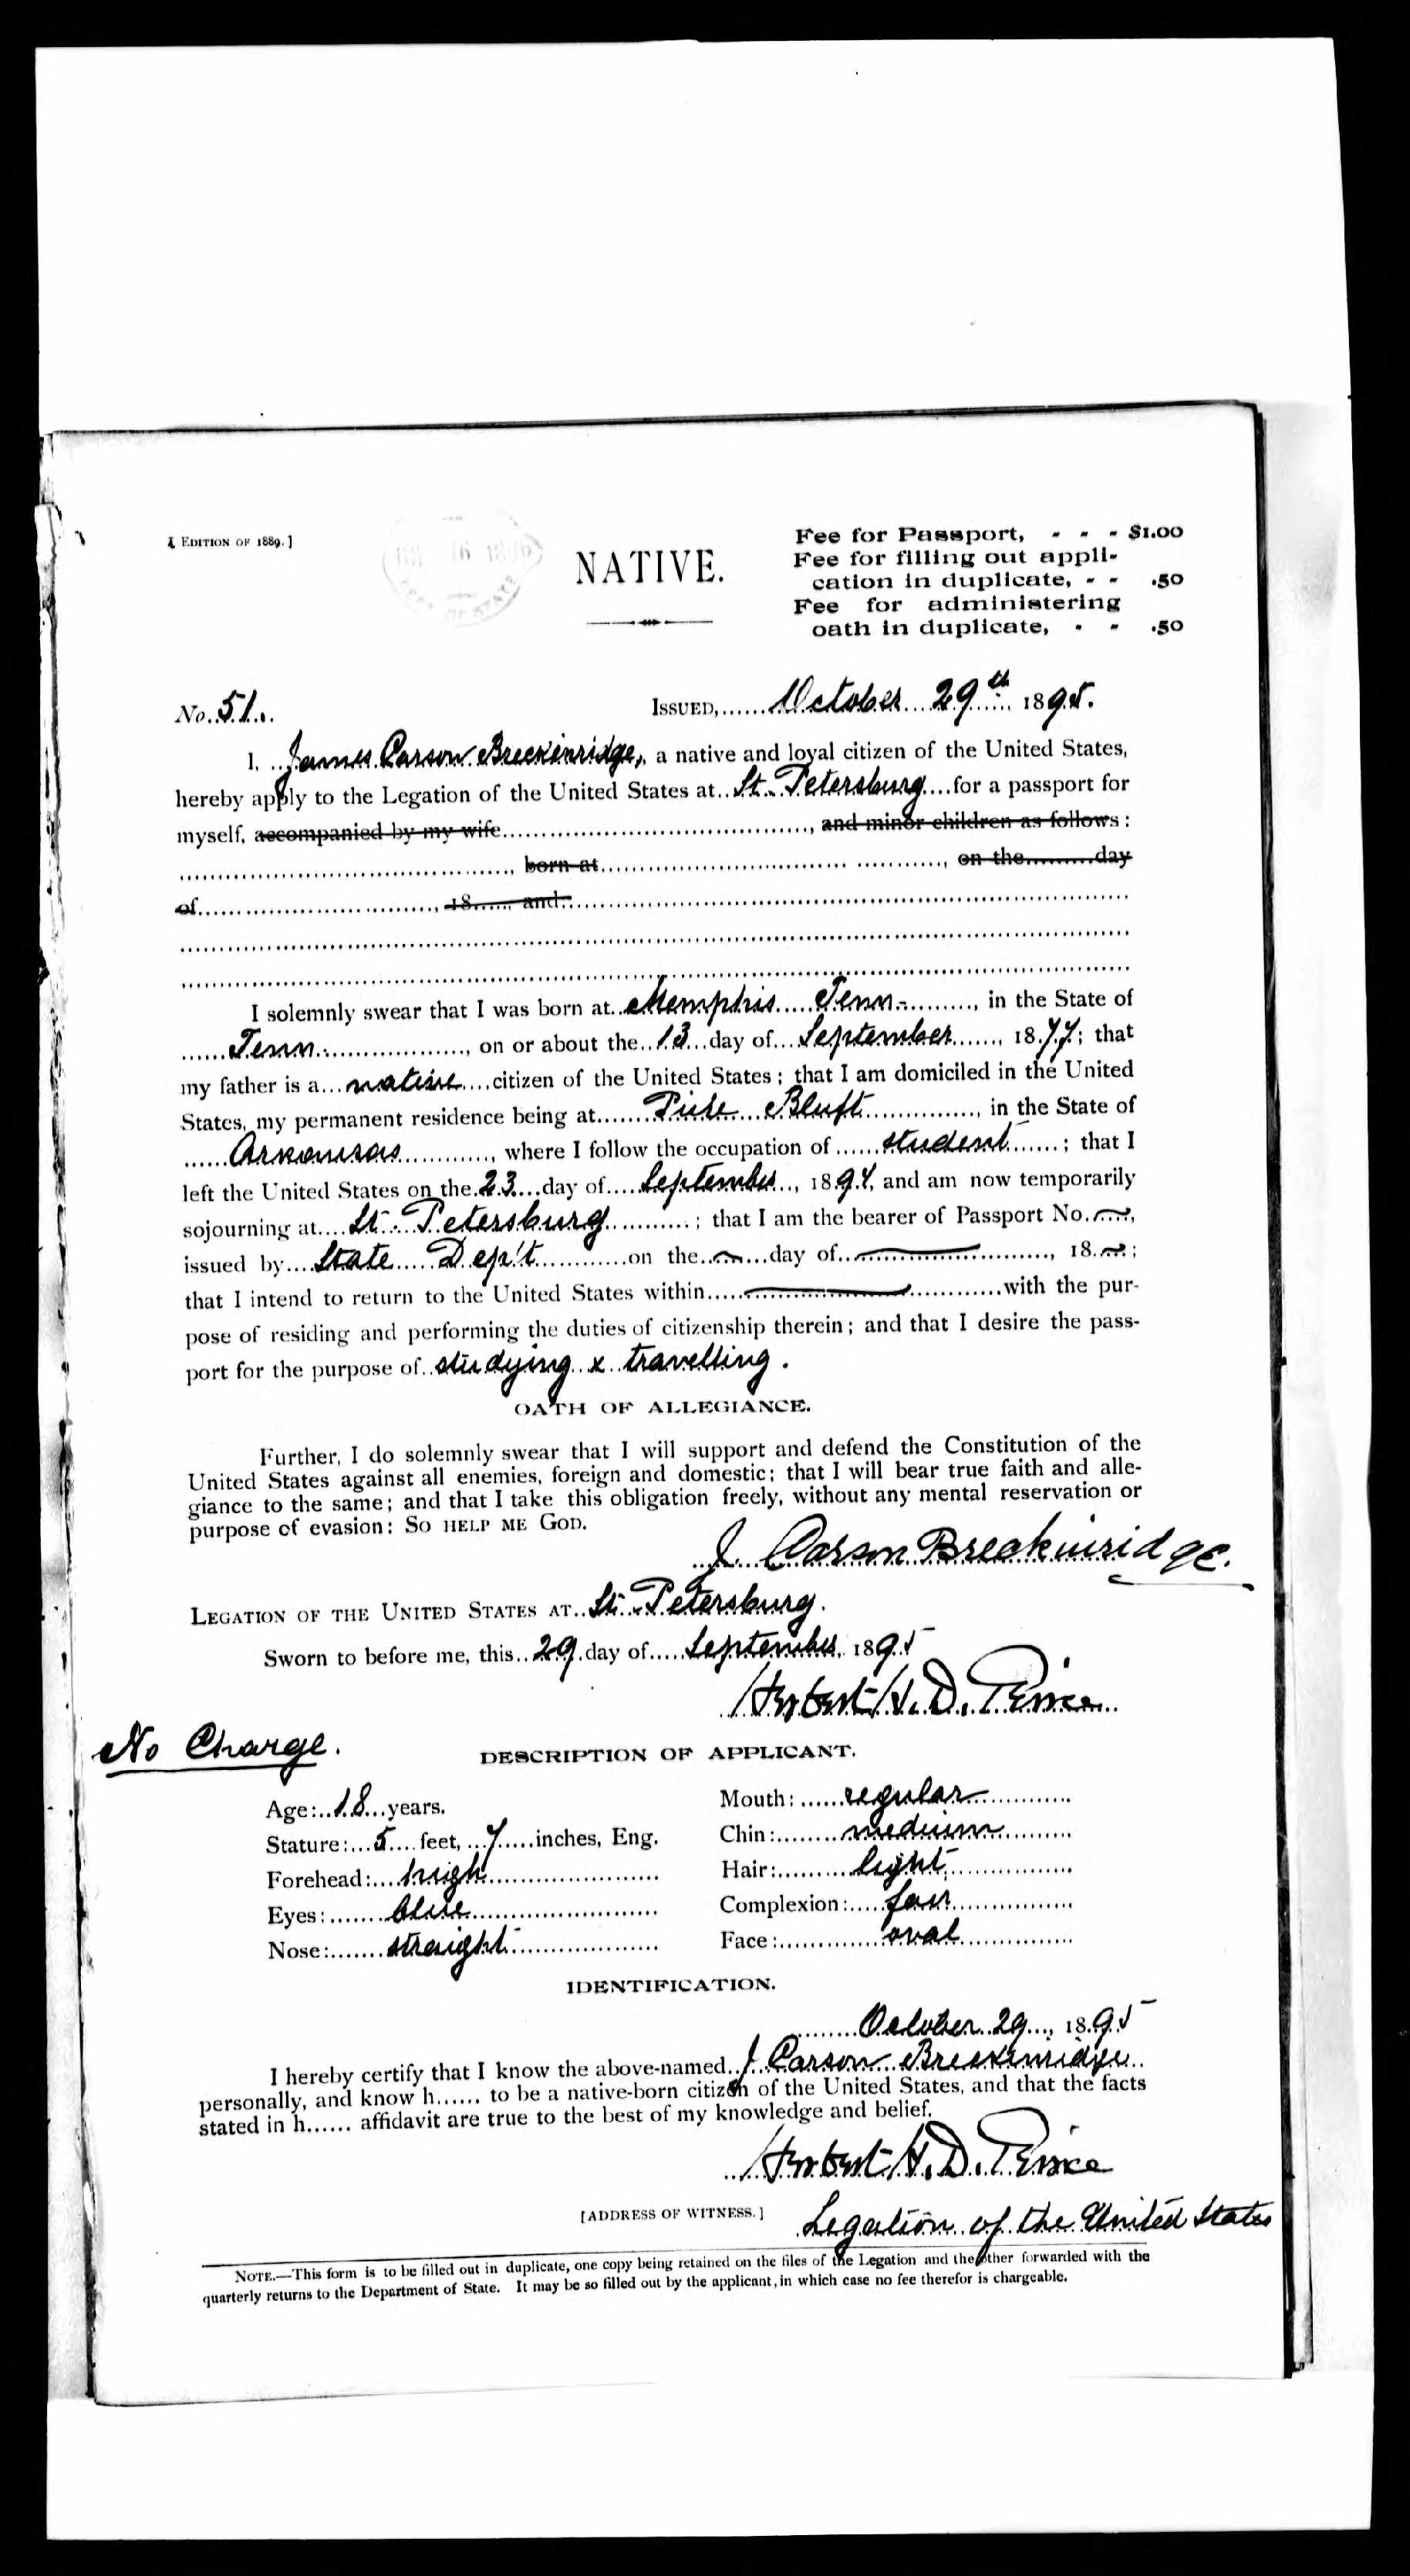 [ EDITION OF 1889. ]
16 1896
OF STATE
NATIVE.
Fee for Passport, - - - $1.00
Fee for filling out appli-
cation in duplicate, - - .50
Fee for administering
oath in duplicate, - - .50
No. 51. ISSUED, October 29th 1895.
I, James Carson Breckinridge, a native and loyal citizen of the United States,
hereby apply to the Legation of the United States at St. Petersburg for a passport for
myself, accompanied by my wife, and minor children as follows:
, born at, on the day
of, 18, and
I solemnly swear that I was born at Memphis Tenn., in the State of
Tenn., on or about the 13 day of September, 1877; that
my father is a native citizen of the United States; that I am domiciled in the United
States, my permanent residence being at Pine Bluff, in the State of
Arkansas, where I follow the occupation of student; that I
left the United States on the 23 day of September, 1894, and am now temporarily
sojourning at St. Petersburg; that I am the bearer of Passport No.,
issued by State Dep't on the day of, 18;
that I intend to return to the United States within with the pur-
pose of residing and performing the duties of citizenship therein; and that I desire the pass-
port for the purpose of studying & travelling.
OATH OF ALLEGIANCE.
Further, I do solemnly swear that I will support and defend the Constitution of the
United States against all enemies, foreign and domestic; that I will bear true faith and alle-
giance to the same; and that I take this obligation freely, without any mental reservation or
purpose of evasion: SO HELP ME GOD.
J. Carson Breckinridge.
LEGATION OF THE UNITED STATES AT St. Petersburg.
Sworn to before me, this 29 day of September, 1895
Herbert H. D. Peirce
No Charge.
DESCRIPTION OF APPLICANT.
Age: 18 years. Mouth: regular
Stature: 5 feet, 7 inches, Eng. Chin: medium
Forehead: high Hair: light
Eyes: blue Complexion: fair
Nose: straight Face: oval
IDENTIFICATION.
October 29, 1895
I hereby certify that I know the above-named J. Carson Breckinridge
personally, and know h...... to be a native-born citizen of the United States, and that the facts
stated in h...... affidavit are true to the best of my knowledge and belief.
Herbert H. D. Peirce
[ADDRESS OF WITNESS.] Legation of the United States
NOTE.—This form is to be filled out in duplicate, one copy being retained on the files of the Legation and the other forwarded with the
quarterly returns to the Department of State. It may be so filled out by the applicant, in which case no fee therefor is chargeable.